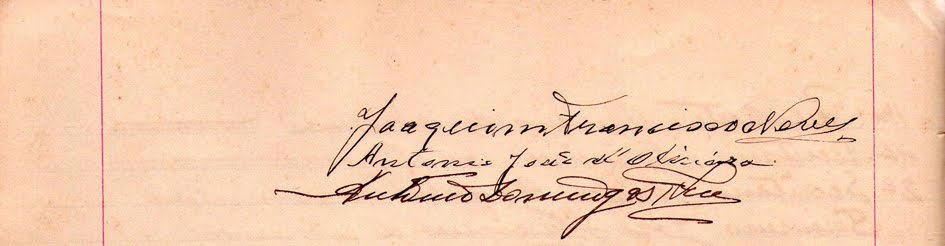 Joaquim Francisco Neves
Antonio João d'Oliveira
Antonio Domingos